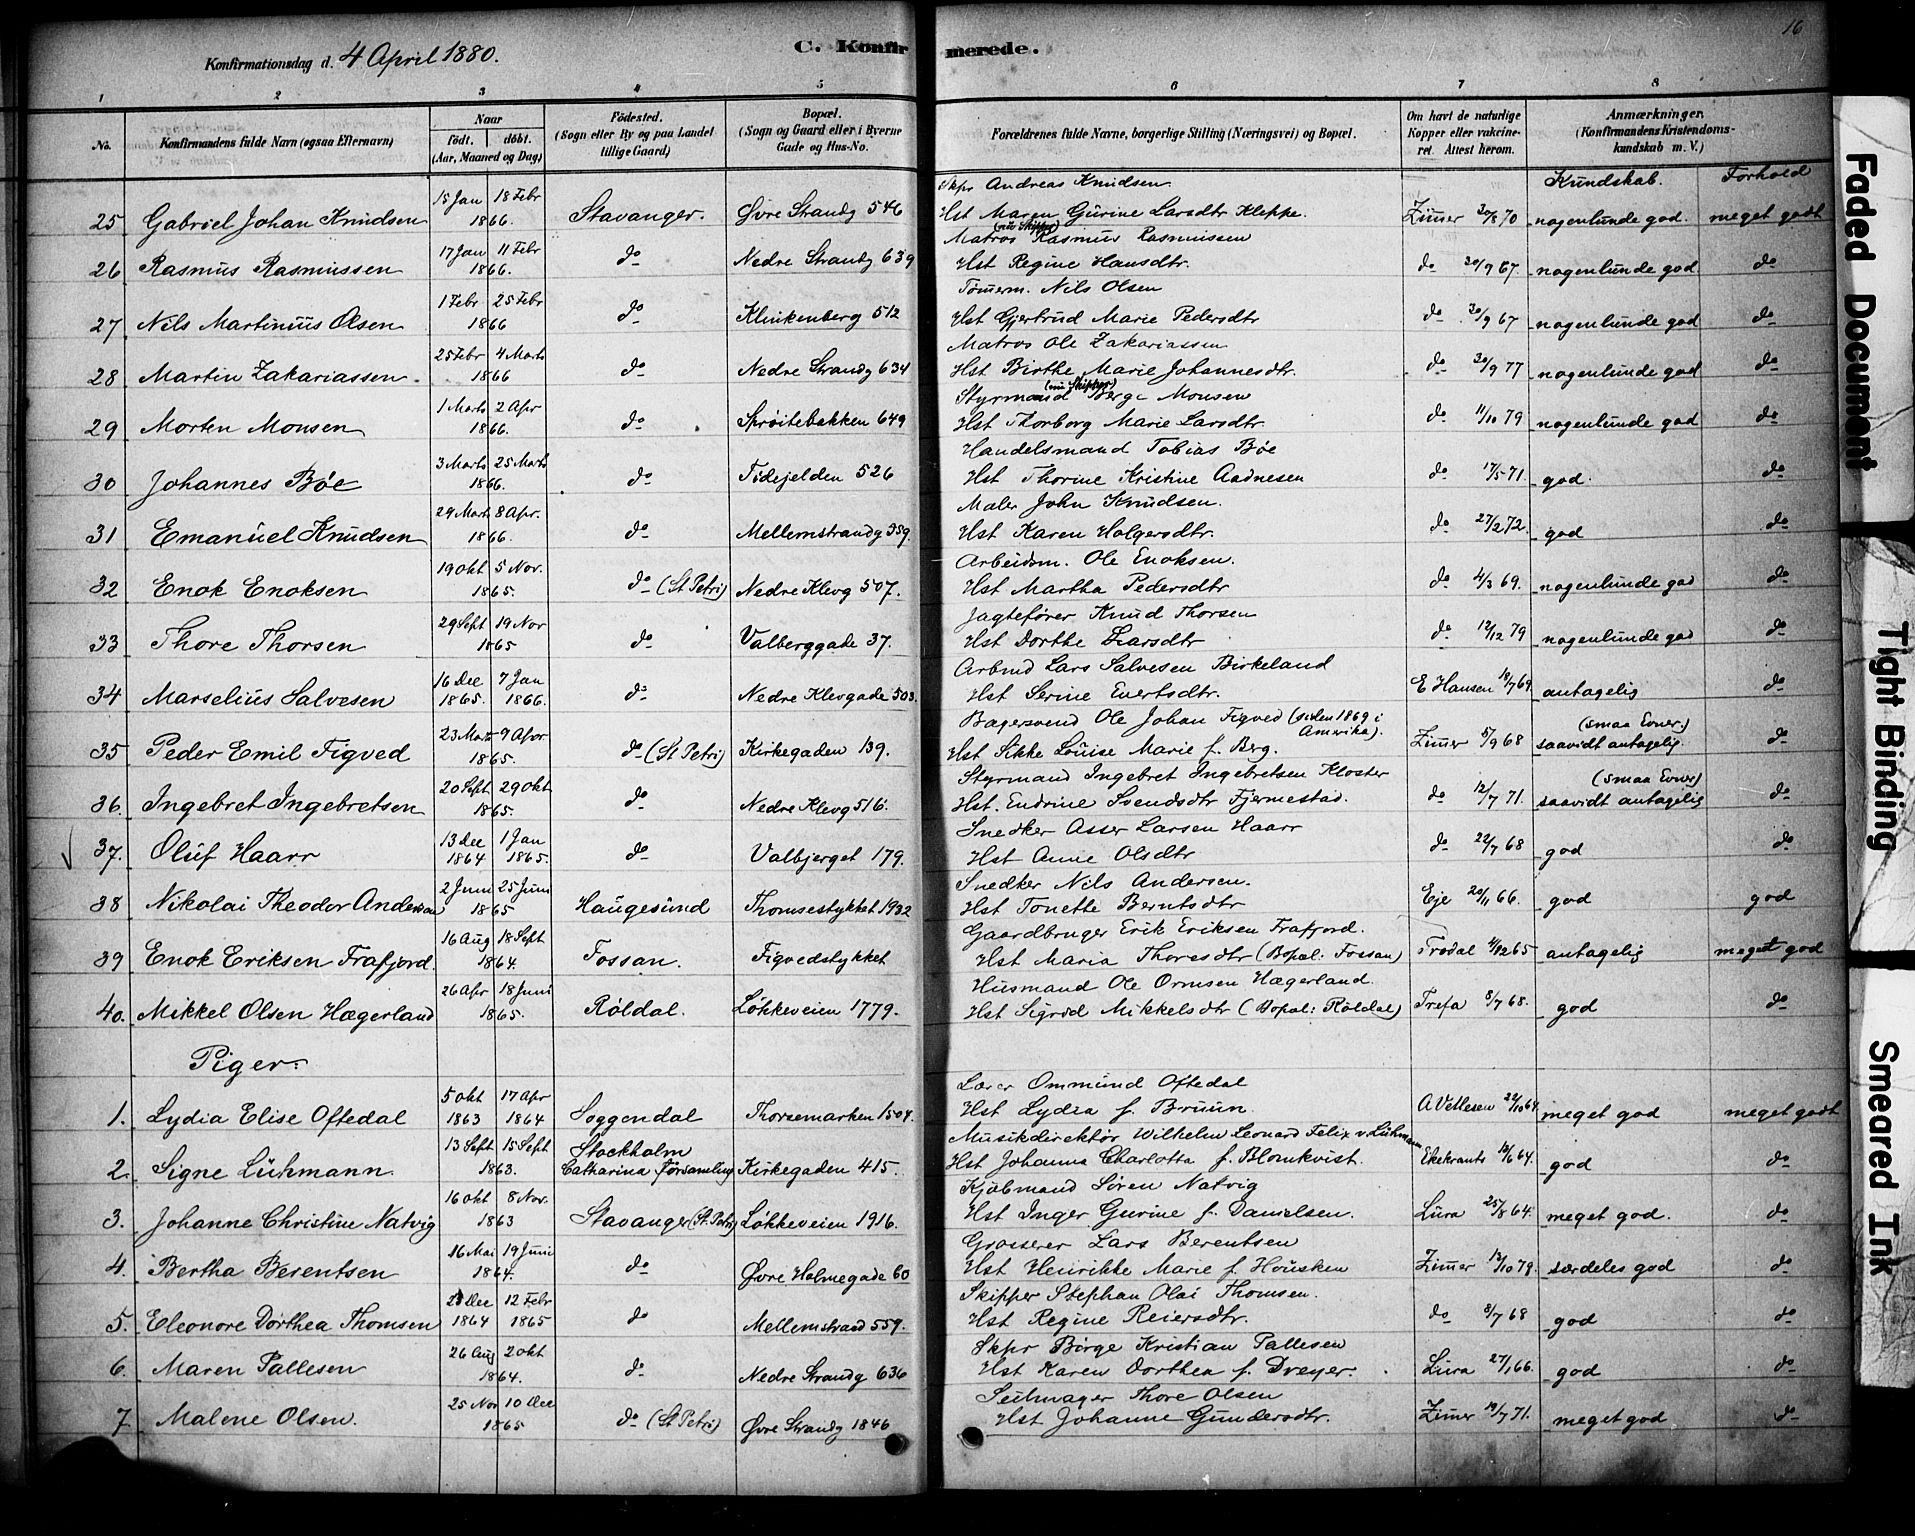 16
Konfirmationsdag d. 4 April 1880.
C. Konfirmerede.
1 2 3 4 5 6 7 8
No.
Konfirmandens fulde Navn (ogsaa Efternavn)
Naar
födt. döbt.
(Aar, Maaned og Dag)
Födested.
(Sogn eller By og paa Landet tillige Gaard)
Bopæl.
(Sogn og Gaard eller i Byerne Gade og Hus-No.
Forældrenes fulde Navne, borgerlige Stilling (Næringsvei) og Bopæl.
Om havt de naturlige Kopper eller vakcineret. Attest herom.
Anmærkninger.
(Konfirmandens Kristendomskundskab m. V.)
Kundskab. Forhold
25 Gabriel Johan Knudsen 15 Jan 18 Febr 1866. Stavanger. Øvre Strandg 546 Skpr Andreas Knudsen Hst Maren Gurine Larsdtr Kleppe. Zimer 70 nogenlunde god. meget godt
26 Rasmus Rasmussen 17 Jan 11 Febr 1866. do Nedre Strandg 639 Matros (nu Skipper) Rasmus Rasmussen Hst Regine Hansdtr. do 30/9 67. nogenlunde god do
27 Nils Martinius Olsen 1 Febr 25 Febr 1866 do Klinkenberg 512 Tømerm. Nils Olsen Hst Gjertrud Marie Pedersdtr do 30/9 67 nogenlunde god do
28 Martin Zakariassen. 25 Febr 4 Marts 1866 do Nedre Strandg 634 Matros Ole Zakariassen Hst Birthe Marie Johannesdtr. do 30/9 77 nogenlunde god do
29 Morten Monsen 1 Marts 2 Apr 1866. do Sprøitebakken 649 Styrmand (nu Skipper) Berge Monsen Hst Thorborg Marie Larsdtr. do 11/10 79 nogenlunde god do
30 Johannes Bøe 3 Marts 25 Marts 1866. do Fidjelden 526 Handelsmand Tobias Bøe Hst Thorine Kristine Aadnesen do 17/5 71. god. do
31 Emanuel Knudsen 29 Marts 8 Apr. 1866. do Mellemstrandg 359. Maler John Knudsen. Hst Karen Holgersdtr. do 27/2 72. god do
32 Enok Enoksen 19 Okt 5 Nov. 1865. do (St Petri) Nedre Klevg 507. Arbeidsm. Ole Enoksen. Hst Martha Pedersdtr do 4/3 69. nogenlunde god do
33 Thore Thorsen 29 Sept 19 Nov 1865 do Valberggade 37. Jagtefører Knud Thorsen Hst Dorthe Larsdtr do 12/12 79 nogenlunde god do
34 Marselius Salvesen 16 Dec 1865. 7 Jan 1866. do Nedre Klevgade 503. Arbmd Lars Salvesen Birkeland Hst Serine Evertsdtr. E Hansen 18/7 69 antagelig do
35 Peder Emil Figved 23 Mart 9 Apr 1865. do (St Petri) Kirkegaden 139. Bagersvend Ole Johan Figved (siden 1869 i Amerika). Hst Sikke Louise Marie f. Berg. Zimer 5/9 68 (smaa Evner.) saavidt antagelig. do
36. Ingebret Ingebretsen 20 Sept 29 Okt 1865. do Nedre Klevg 516. Styrmand Ingebret Ingebretsen Kloster Hst. Endrine Svendsdtr Fjermestad. do 12/7 71. (smaa Evner) saavidt antagelig do
37. Oluf Haarr 13 Dec 1864 1 Jan 1865. do Valbjerget 179. Snedker Asser Larsen Haarr Hst Anne Olsdtr do 22/7 68 god do
38 Nikolai Theodor Andersen 2 Juni 25 Juni 1865 Haugesund Thomsestykket 1932 Snedker Nils Andersen. Hst Tonette Berntsdtr Eje 20/11 66. god god
39 Enok Eriksen Frafjord. 16 Aug 18 Sept 1864. Fossan. Figvedstykket Gaardbruger Erik Eriksen Frafjord. Hst Maria Thoresdtr (Bopæl: Fossan) Trodal 65 antagelig meget god
40. Mikkel Olsen Hægerland 26 Apr 18 Juni 1865. Røldal. Løkkeveien 1779. Husmand Ole Ormsen Hægerland. Hst Sigrid Mikkelsdtr (Bopæl: Røldal) Trefa 8/7 68. god do
Piger.
1. Lydia Elise Oftedal 5 Okt 1863 17 Apr 1864 Soggendal Thorsemarken 1504. Lærer Ommund Oftedal Hst Lydia f. Bruun. A Vetlesen 22/10 64. meget god meget godt
2. Signe Lühmann. 13 Sept 15 Sept 1863. Stockholm Catharina församling Kirkegaden 415. Musikdirektør Wilhelm Leonard Felix v. Lühmann Hst Johanna Charlotta f. Blomkvist. Ekekrantz 64. god do
3. Johanne Christine Natvig 16 Okt 8 Nov. 1863 Stavanger (St. Petri) Løkkeveien 1916. Kjøbmand Søren Natvig Hst Inger Gurine f. Danielsen. Lura 25/8 64. meget god. do
4. Bertha Berentsen 16 Mai 19 Juni 1864. do Øvre Holmegade 60 Grosserer Lars Berentsen Hst Henrikke Marie f. Housken Zimer 13/10 79. særdeles god do
5. Eleonore Dorthea Thomsen 23 Dec 1864 12 Febr 1865 do Mellemstrand 559. Skipper Stephan Olai Thomsen. Hst Regine Reiersdtr. do 8/7 68 god do
6. Maren Pallesen 26 Aug 2 Okt 1864. do Nedre Strandg 636 Skpr Børge Kristian Pallesen Hst Karen Dorthea f. Dreyer. Lura 27/1 66. god do
7. Malene Olsen. 25 Nov 10 Dec 1865 do (St Petri) Øvre Strandg 1846 Seilmager Thore Olsen Hst Johanne Gundersdtr. Zimer 19/7 71. meget god do
Faded Document
Tight Binding
Smeared Ink